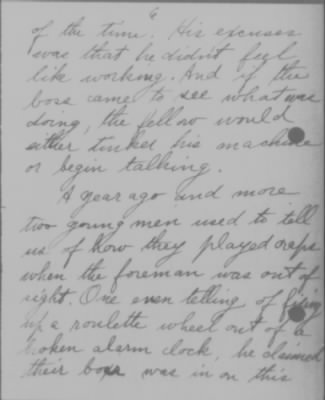 6
of the time. His excuses
was that he didn't feel
like working. And if the
boss came to see what was
doing, the fellow would
either tinker his machine
or begin talking.
A year ago and more
two young men used to tell
us of how they played craps
when the foreman was out of
sight. One even telling of fixing
up a roulette wheel out of a
broken alarm clock, he claimed
their boss was in on this